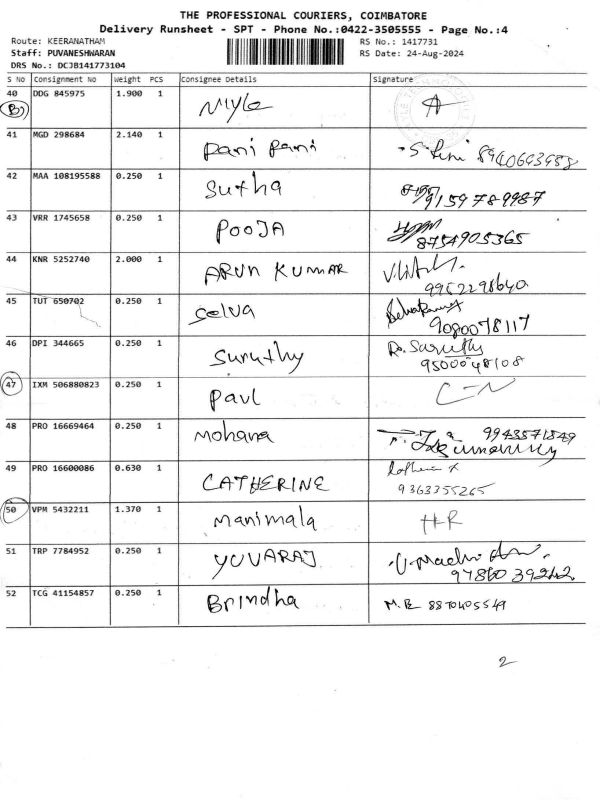 THE PROFESSIONAL COURIERS, COIMBATORE
Delivery Runsheet - SPT - Phone No.:0422-3505555 - Page No.:4
Route: KEERANATHAM RS No.: 1417731
Staff: PUVANESHWARAN RS Date: 24-Aug-2024
DRS No.: DCJB141773104
S No Consignment No Weight PCS Consignee Details Signature
40 DDG 845975 1.900 1
41 MGD 298684 2.140 1 Pani Pani
42 MAA 108195588 0.250 1 Sutha 9159789987
43 VRR 1745658 0.250 1 POOJA 8754905365
44 KNR 5252740 2.000 1 ARUN KUMAR
45 TUT 650702 0.250 1 Selva 9080078117
46 DPI 344665 0.250 1 Suruthy 9500048108
47 IXM 506880823 0.250 1 Paul
48 PRO 16669464 0.250 1 Mohana 9943571549
49 PRO 16600086 0.630 1 CATHERINE 9363355265
50 VPM 5432211 1.370 1 Manimala HR
51 TRP 7784952 0.250 1 YUVARAJ
52 TCG 41154857 0.250 1 Brindha
2